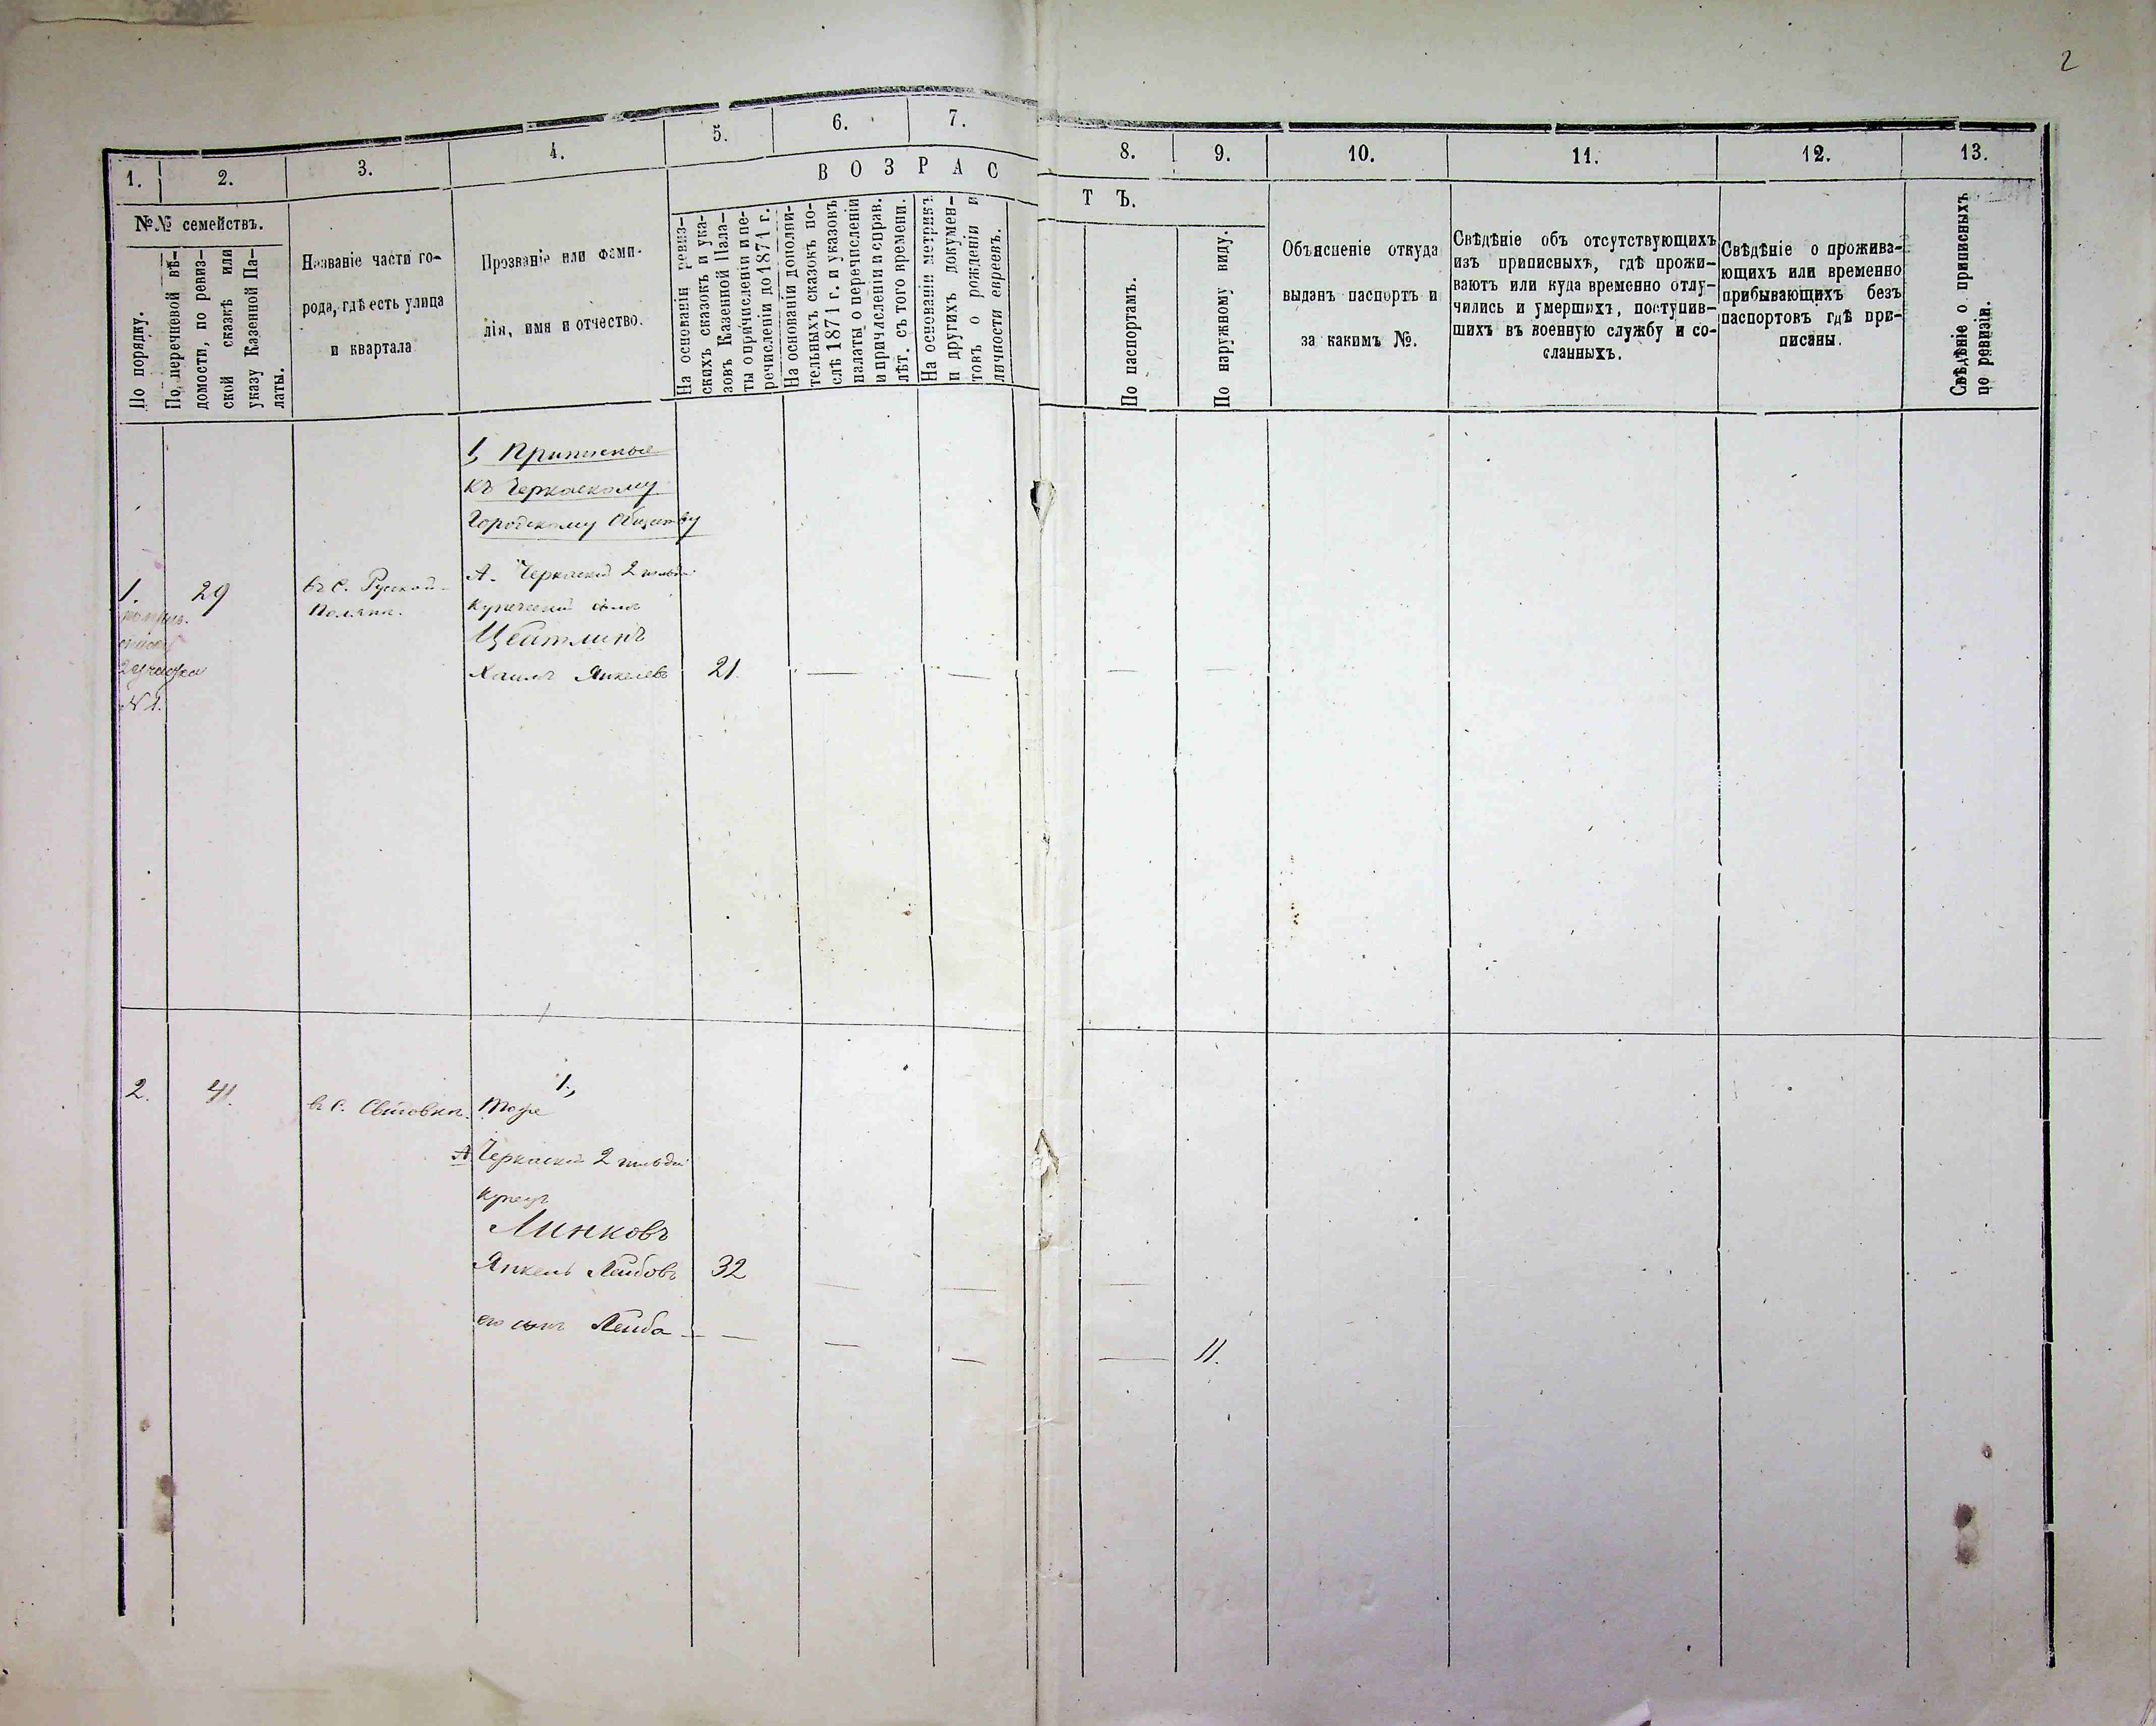 2
1.
2.
3.
4.
5.
6.
7.
8.
9.
10.
11.
12.
13.
№№ семействъ.
По порядку.
По перечневой вѣ-
домости, по ревиз-
ской сказкѣ или
указу Казенной Па-
латы.
Названіе части го-
рода, гдѣ есть улица
и квартала
Прозваніе или фами-
лія, имя и отчество.
ВОЗРАС
ТЪ.
На основаніи ревиз-
скихъ сказокъ и ука-
зовъ Казенной Пала-
ты о причисленіи и пе-
речисленіи до 1871 г.
На основаніи дополни-
тельныхъ сказокъ по-
слѣ 1871 г. и указовъ
палаты о перечисленіи
и причисленіи и справ.
лѣт. съ того времени.
На основаніи метрикъ
и другихъ докумен-
товъ о рожденіи и
личности евреевъ.
По паспортамъ.
По наружному виду.
Объясненіе откуда
выданъ паспортъ и
за какимъ №.
Свѣдѣніе объ отсутствующихъ
изъ приписныхъ, гдѣ прожи-
ваютъ или куда временно отлу-
чились и умершихъ, поступив-
шихъ въ военную службу и со-
сланныхъ.
Свѣдѣніе о прожива-
ющихъ или временно
прибывающихъ безъ
паспортовъ гдѣ при-
писаны.
Свѣдѣніе о приписныхъ
по ревизіи.
1, Приписные
къ Черкаскому
Городскому Обществу
1.
29
въ с. Руской-
Полянѣ.
А. Черкаскій 2 гильдіи
купеческій сынъ
Цейтлинъ
Хаимъ Янкелевъ 21. — — — —
2 участка
№ 1.
2.
41.
въ с. Свидовкѣ.
1.,
Тоже
А. Черкаскій 2 гильдіи
купецъ
Линковъ
Янкель Лейбовъ 32 — — —
его сынъ Лейба — — — — — 11.